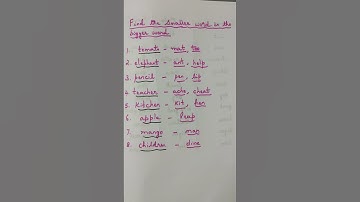 Find the smaller word in the
bigger word.
1. tomato - mat, too
2. elephant - ant, help
3. pencil - pen, lip
4. teacher - ache, cheat
5. Kitchen - Kit, hen
6. apple - leap
7. mango - man
8. children - dine